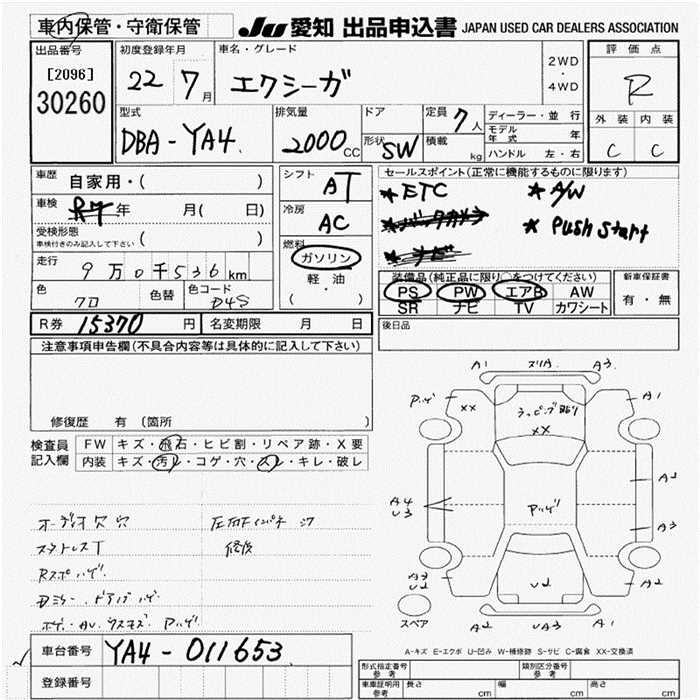 車内保管・守衛保管
JU 愛知 出品申込書 JAPAN USED CAR DEALERS ASSOCIATION
出品番号
[2096]
30260
初度登録年月
22 7月
車名・グレード
エクシーガ
2WD
・
4WD
評価点
R
外装 内装
C C
型式
DBA-YA4
排気量
2000 CC
ドア
形状 SW
定員 7人
積載 kg
ディーラー・並行
モデル年式 年
ハンドル 左・右
車歴 自家用・( )
車検 R7年 月( 日)
受検形態
車検付きのみ記入して下さい ( )
走行 9万0千536km
色 クロ
色替
色コード D4S
シフト AT
冷房 AC
燃料
ガソリン
軽油
( ・ )
セールスポイント(正常に機能するものに限ります)
* ETC * A/W
* バックカメラ * Push Start
* ナビ
装備品(純正品に限り○をつけてください)
PS PW エアB AW
SR ナビ TV カワシート
新車保証書
有・無
R券 15370円
名変期限 月 日
後日品
注意事項申告欄(不具合内容等は具体的に記入して下さい)
修復歴 有 (箇所 )
検査員記入欄
FW キズ・飛石・ヒビ割・リペア跡・X要
内装 キズ・汚レ・コゲ・穴・スレ・キレ・破レ
オーディオ欠 穴
Rスポ ハゲ
修復
A1 スリA A3
ハゲ XX A1
ラッピング貼り
XX
A4
U3
ハゲ
A2
A3
A3
U2
U2
A2
スペア
A2 UA3 A1
A-キズ E-エクボ U-凹み W-補修跡 S-サビ C-腐食 XX-交換済
車台番号 YA4-011653
登録番号
型式指定番号 参考
類別区分番号 参考
車庫証明用 参考 長さ cm 幅 cm 高さ cm